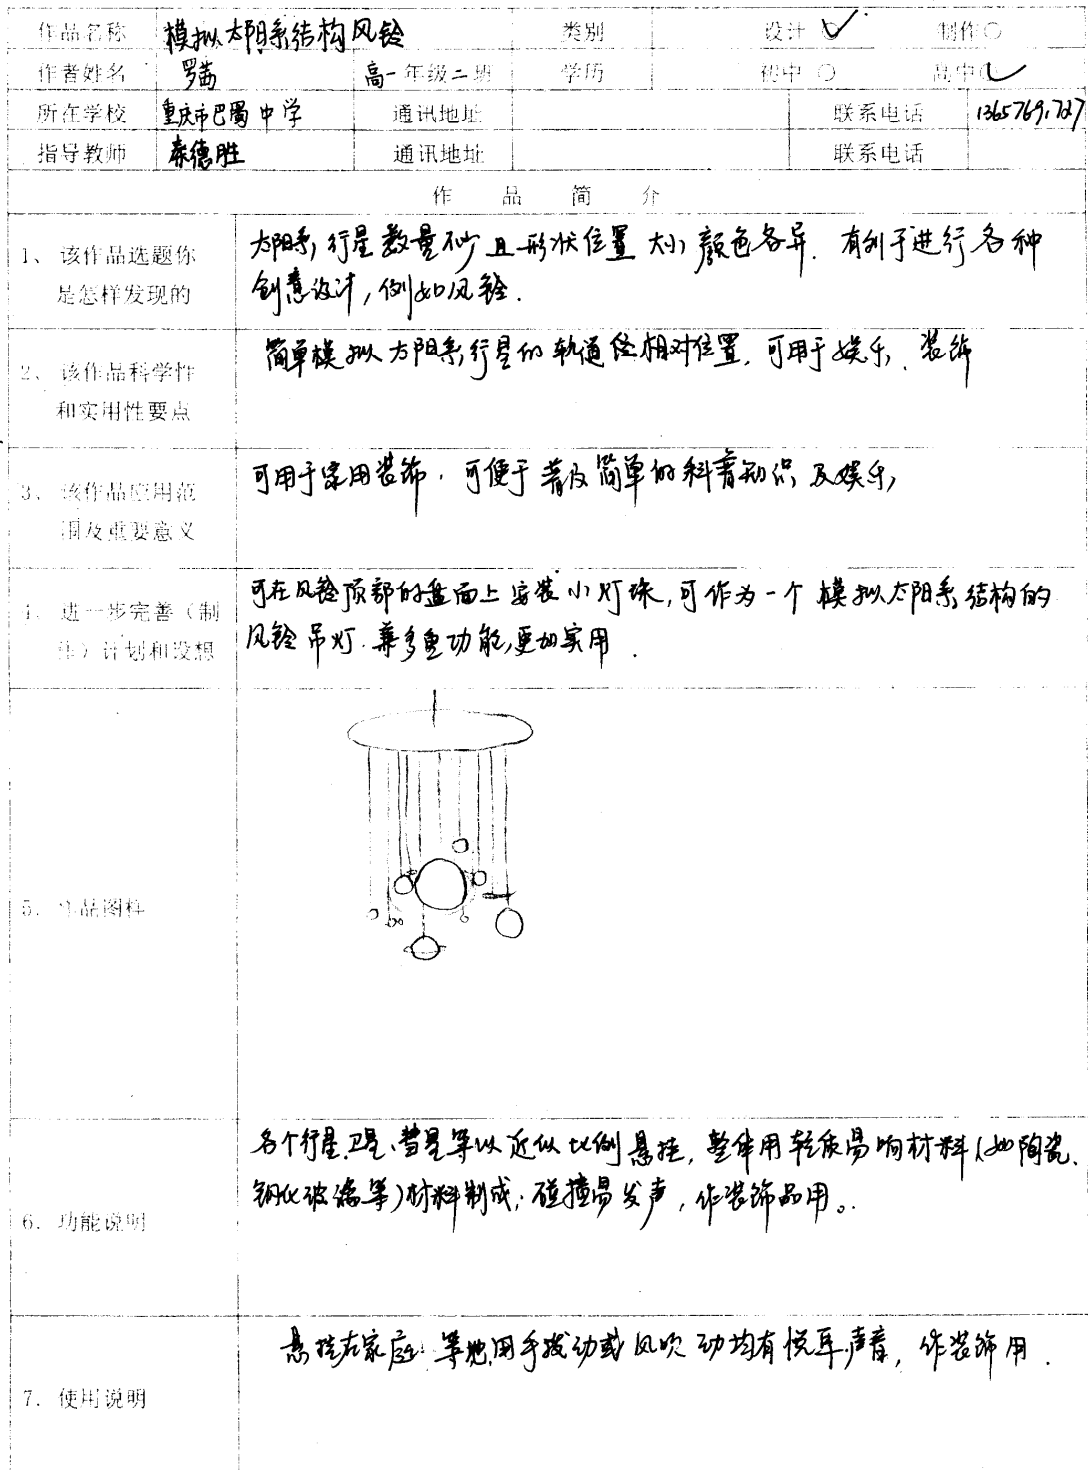 作品名称 模拟太阳系结构风铃 类别 设计○ 制作○
作者姓名 罗茜 高一年级二班 学历 初中○ 高中○
所在学校 重庆市巴蜀中学 通讯地址 联系电话
指导教师 秦德胜 通讯地址 联系电话
作 品 简 介
1、该作品选题你
是怎样发现的
太阳系,行星数量不少且形状位置大小颜色各异.有利于进行各种
创意设计,例如风铃.
2、该作品科学性
和实用性要点
简单模拟太阳系行星的轨道 相对位置,可用于娱乐、装饰
3、该作品应用范
围及重要意义
可用于家用装饰,可便于普及简单的科普知识及娱乐,
4、进一步完善(制
作)计划和设想
可在风铃顶部的盘面上安装小灯珠,可作为一个模拟太阳系结构的
风铃吊灯.兼多重功能,更加实用.
5、作品图样
6、功能说明
各个行星、卫星、彗星等以近似比例悬挂,整体用轻质易响材料(如陶瓷、
钢化玻璃等)材料制成;碰撞易发声,作装饰品用。
7、使用说明
悬挂在家庭等地,用手拨动或风吹动均有悦耳声音,作装饰用.